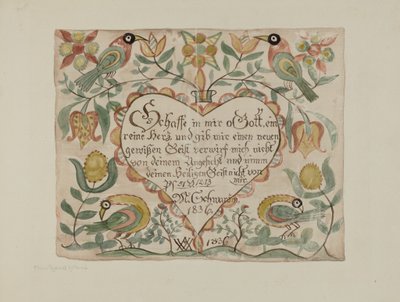 Schaffe in mir o Gott, ein
reine Herz und gib mir einen neuen
gewißen Geist verwirf mich nicht
von deinem Angesicht und nimm
deinen Heiligen Geist nicht von
mir.
1836.
1836